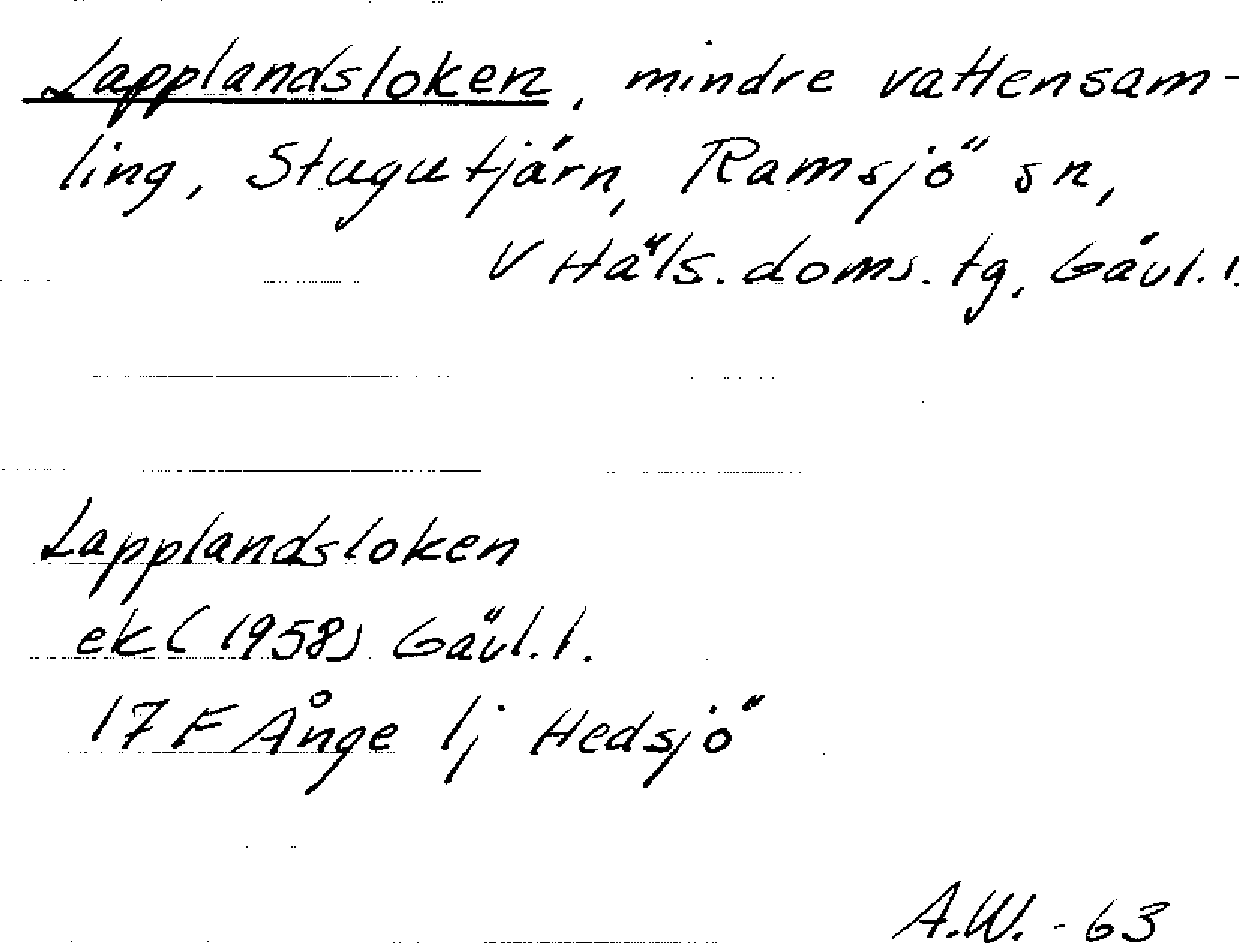 Lapplandsloken, mindre vattensam-
ling, Stugutjärn, Ramsjö sn,
V Häls. doms. tg, Gävl. l.
Lapplandsloken
ek (1958) Gävl. l.
17 F Ånge 1j Hedsjö
A.W. - 63